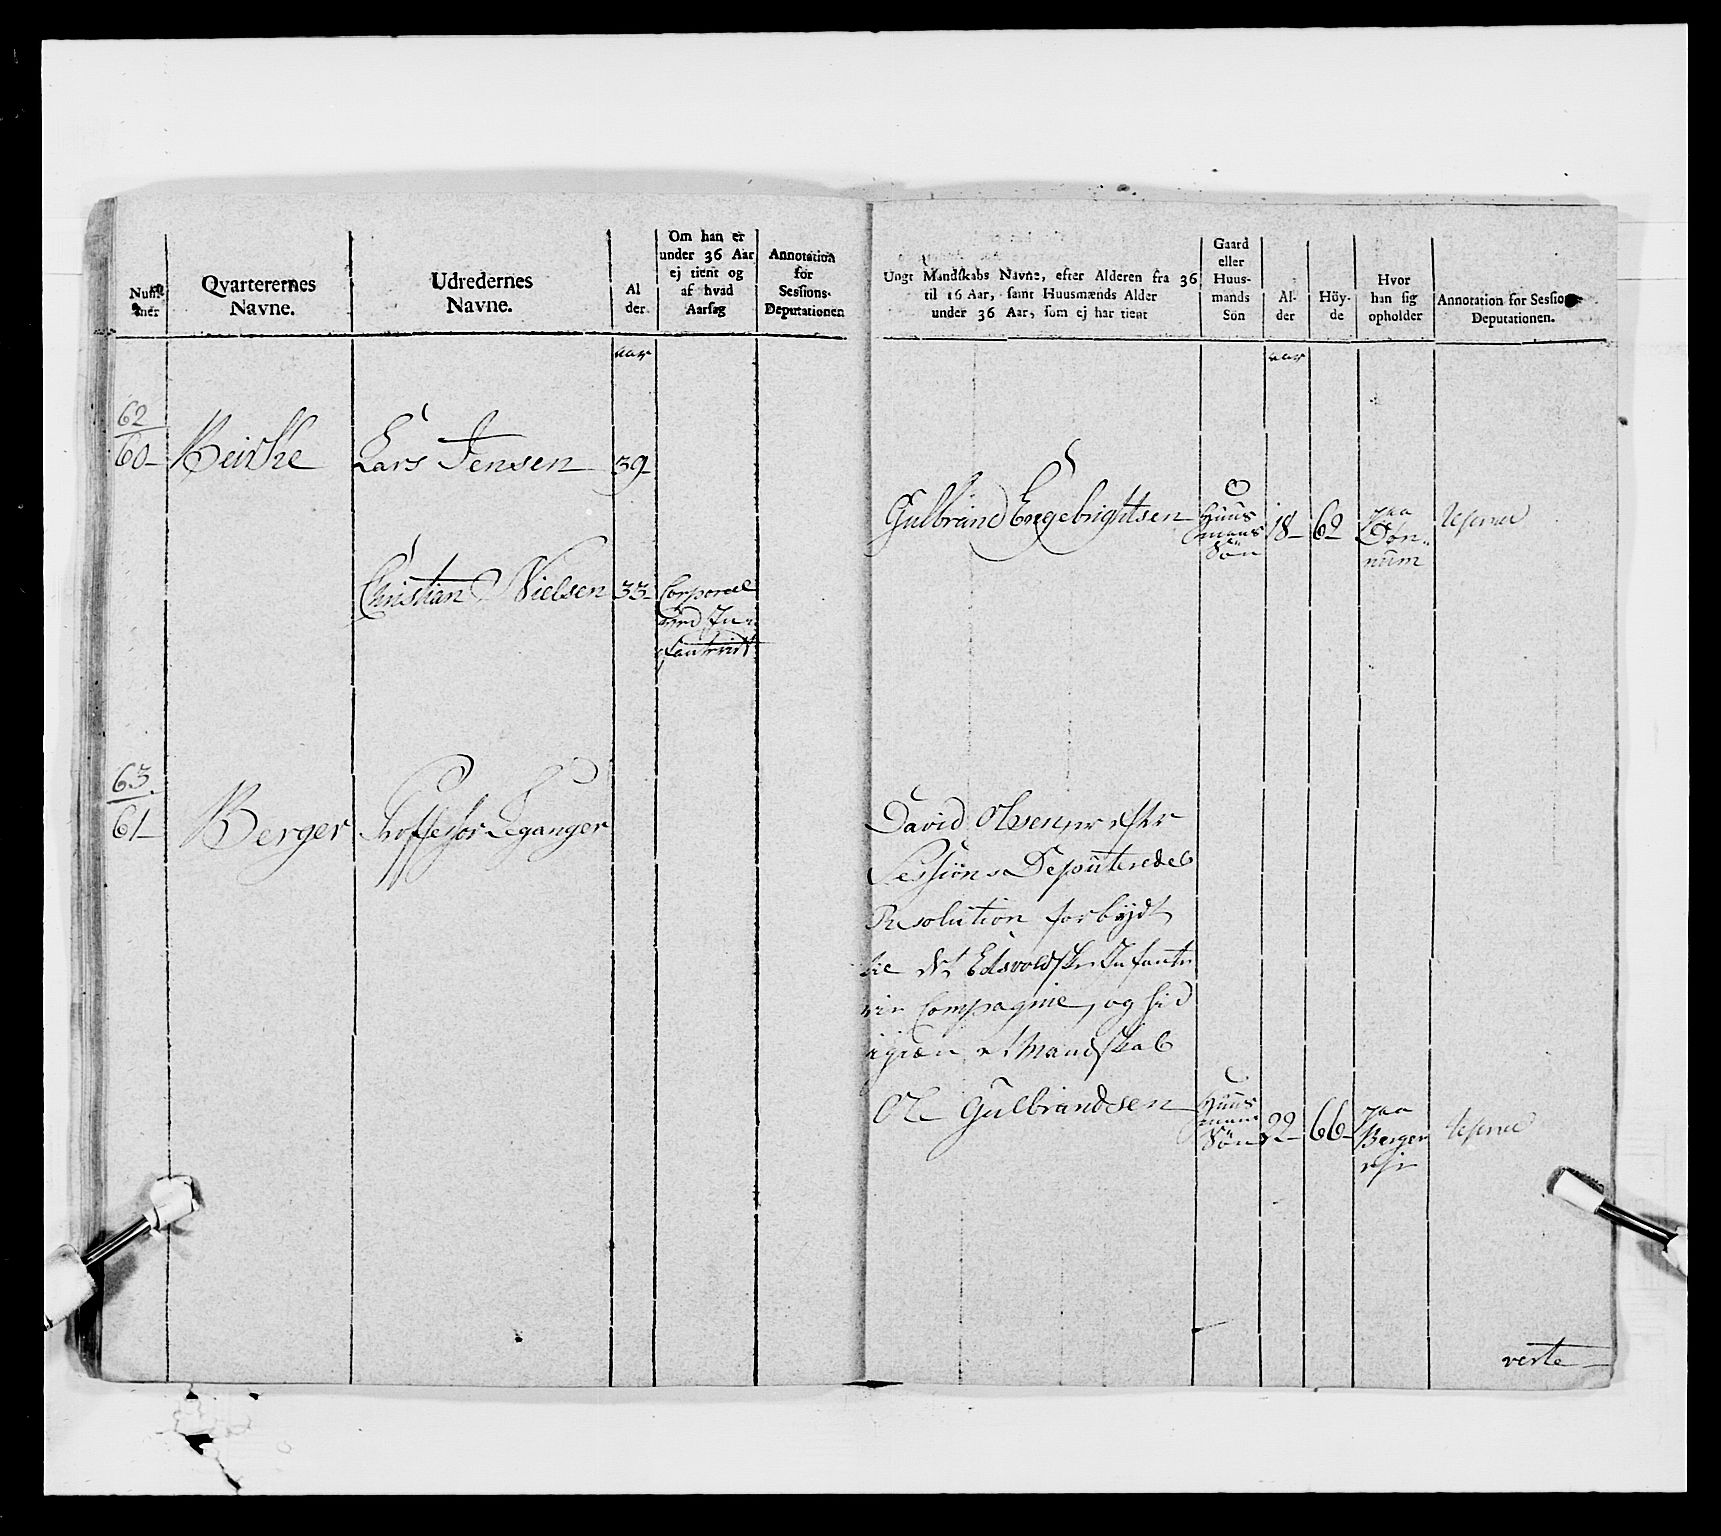 Num
mer
Qvarterernes
Navne.
Udredernes
Navne.
Al
der
Om han er
under 36 Aar
ej tient og
af hvad
Aarsag
Annotation
for
Sessions-
Deputationen
Ungt Mandskabs Navne, efter Alderen fra 36
til 16 Aar, samt Huusmænds Alder
under 36 Aar, som ej har tient
Gaard
eller
Huus-
mands
Sön
Al-
der
Höy-
de
Hvor
han sig
opholder
Annotation for Sessions-
Deputationen.
aar
aar
62
60 Beirke Lars Jensen 39
Gulbrand Engebrightsen Huus
mans
Søn 18 62 paa
Døn-
num
Christian Nielsen 33 Corporal
ved In-
fanteriet
63
61 Berger Proffessor Leganger
David Olsen, er efter
Sessions Deputeredes
Resolution forbydt
til det Edsvoldske Infante
rie Compagnie, og hid
igien et Mandskab
Ole Gulbrandsen Huus
mans
Søn 22 66 paa
Berger
eje
verte